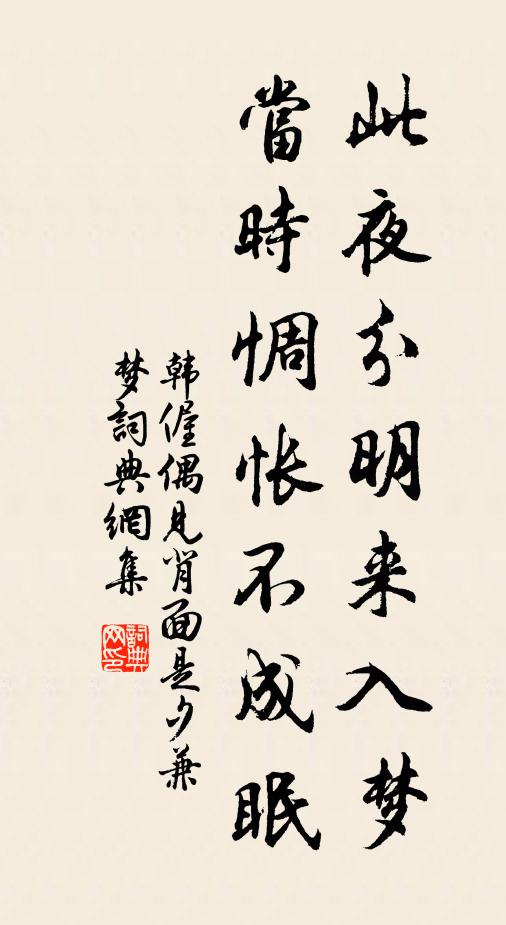 此夜分明来入梦
當時惆怅不成眠
韩偓偶见背面是夕兼
梦詞典網集
詞典网印